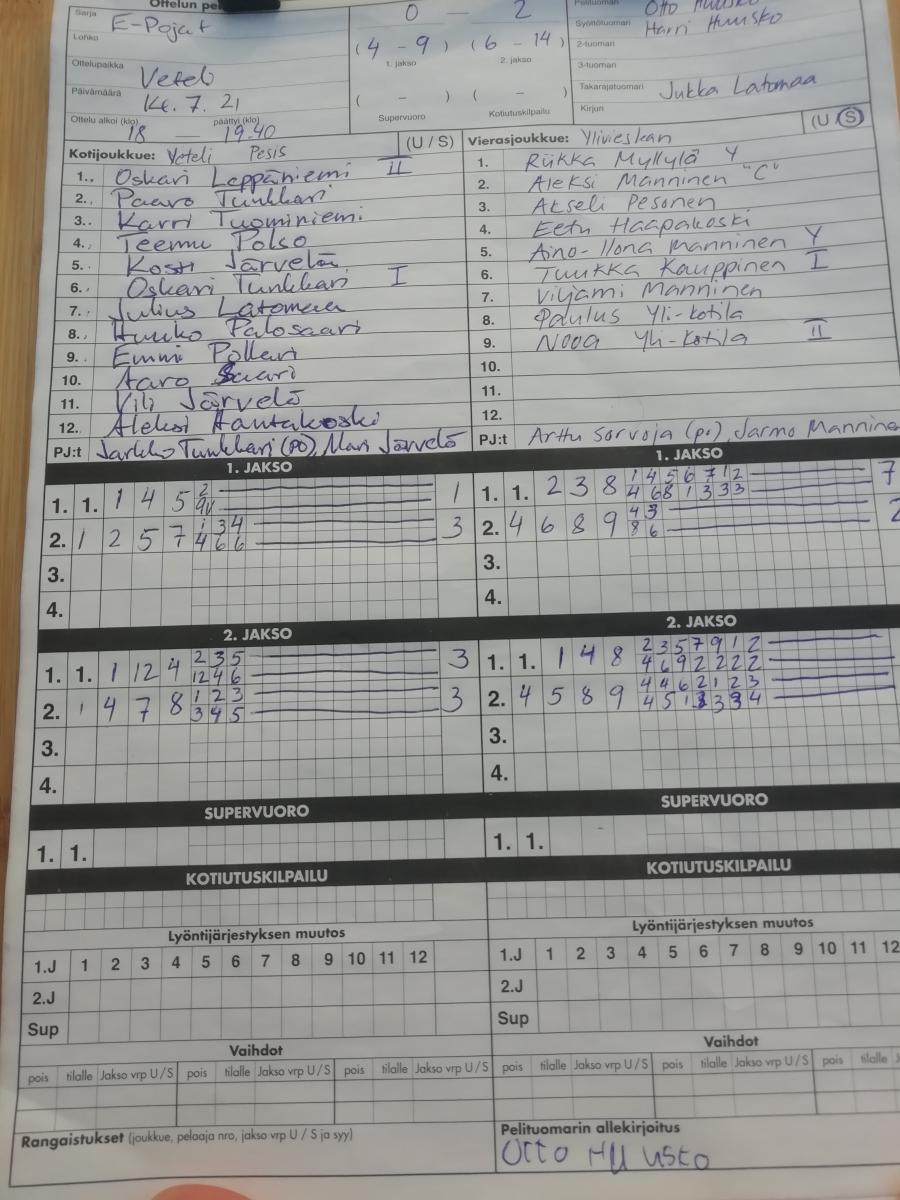 Ottelun
Sarja E-Pojat
Lohko
Ottelupaikka Veteli
Päivämäärä 7. 21
Ottelu alkoi (klo) 18 — päättyi (klo) 19.40
0 — 2
(4 - 9) (6 - 14)
1. jakso 2. jakso
( - ) ( - )
Supervuoro Kotiutuskilpailu
Pelituomari Otto Huusko
Syöttötuomari Harri Huusko
2-tuomari
3-tuomari
Takarajatuomari Jukka Latomaa
Kirjuri
Kotijoukkue: Veteli Pesis (U / S)
1. Oskari Leppäniemi II
2. Paavo Tunkkari
3. Karri Tuominiemi
4. Teemu Polso
5. Kosti Järvelä
6. Oskari Tunkkari I
7. Julius Latomaa
8. Palosaari
9. Emmi Pollari
10. Aaro Saari
11. Vili Järvelä
12. Aleksi Hautakoski
PJ:t Jarkko Tunkkari (PJ), Mari Järvelä
Vierasjoukkue: Ylivieskan (U / S)
1. Riikka Myllylä Y
2. Aleksi Manninen "C"
3. Akseli Pesonen
4. Eetu Haapakoski
5. Aino-Ilona Manninen Y
6. Tuukka Kauppinen I
7. Viljami Manninen
8. Paulus Yli-Kotila
9. Nooa Yli-Kotila II
10.
11.
12.
PJ:t Arttu Sorvoja (PJ), Jarmo
1. JAKSO
1. 1. 1 4 5 2 1
2. 1 2 5 7 1 3 4 3
4 6 6
3.
4.
1. JAKSO
1. 1. 2 3 8 1 4 5 6 7 1 2 7
4 6 8 1 3 3 3
2. 4 6 8 9 4 3 2
8 6
3.
4.
2. JAKSO
1. 1. 1 12 4 2 3 5 3
12 4 6
2. 1 4 7 8 1 2 3 3
3 4 5
3.
4.
2. JAKSO
1. 1. 1 4 8 2 3 5 7 9 1 2
4 6 9 2 2 2 2
2. 4 5 8 9 4 4 6 2 1 2 3
4 5 1 3 3 4
3.
4.
SUPERVUORO
1. 1.
SUPERVUORO
1. 1.
KOTIUTUSKILPAILU
KOTIUTUSKILPAILU
Lyöntijärjestyksen muutos
1.J 1 2 3 4 5 6 7 8 9 10 11 12
2.J
Sup
Lyöntijärjestyksen muutos
1.J 1 2 3 4 5 6 7 8 9 10 11 12
2.J
Sup
Vaihdot
pois tilalle Jakso vrp U / S pois tilalle Jakso vrp U / S pois tilalle Jakso vrp U / S
Vaihdot
pois tilalle Jakso vrp U / S pois tilalle Jakso vrp U / S pois tilalle
Rangaistukset (joukkue, pelaaja nro, jakso vrp U / S ja syy)
Pelituomarin allekirjoitus
Otto Huusko